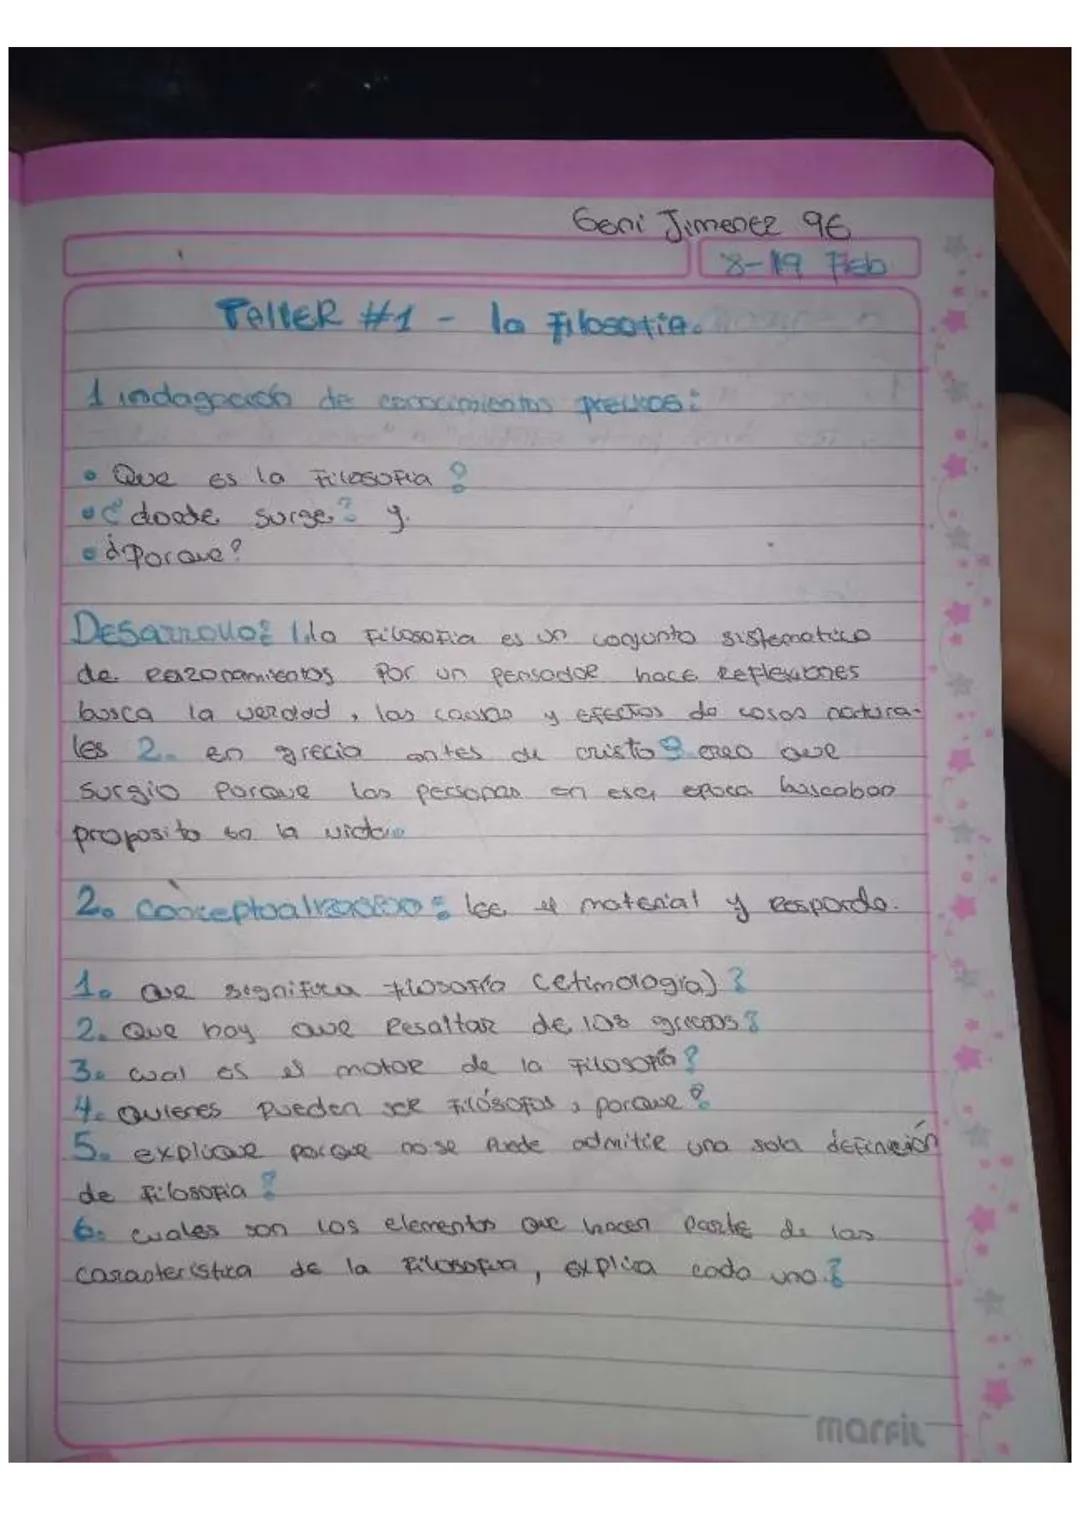 Geni Jimenez 9E
8-19 Feb
TALLER #1 - la Filosofia.
1 indagación de conocimientos previos:
• Que es la Filosofia?
• ¿ donde surge? y.
• ¿Porque?
Desarrollo: 1. la Filosofia es un conjunto sistematico
de razonamientos Por un pensador hace Reflexiones
busca la verdad, las causas y efectos de cosas natura-
les 2. en grecia antes de cristo 3 creo que
surgio Porque las personas en esa epoca buscaban
proposito en la vida.
2. Conceptualización: lee el material y responde.
1. Que significa filosofía (etimologia)?
2. Que hay que Resaltar de los griegos?
3. Cual es el motor de la Filosofía?
4. Quienes pueden ser Filósofos, porque?
5. explique porque no se Puede admitir una sola definición
de Filosofia?
6. Cuales son los elementos que hacen Parte de las
caracteristica de la Filosofia, explica cada uno?
marfil